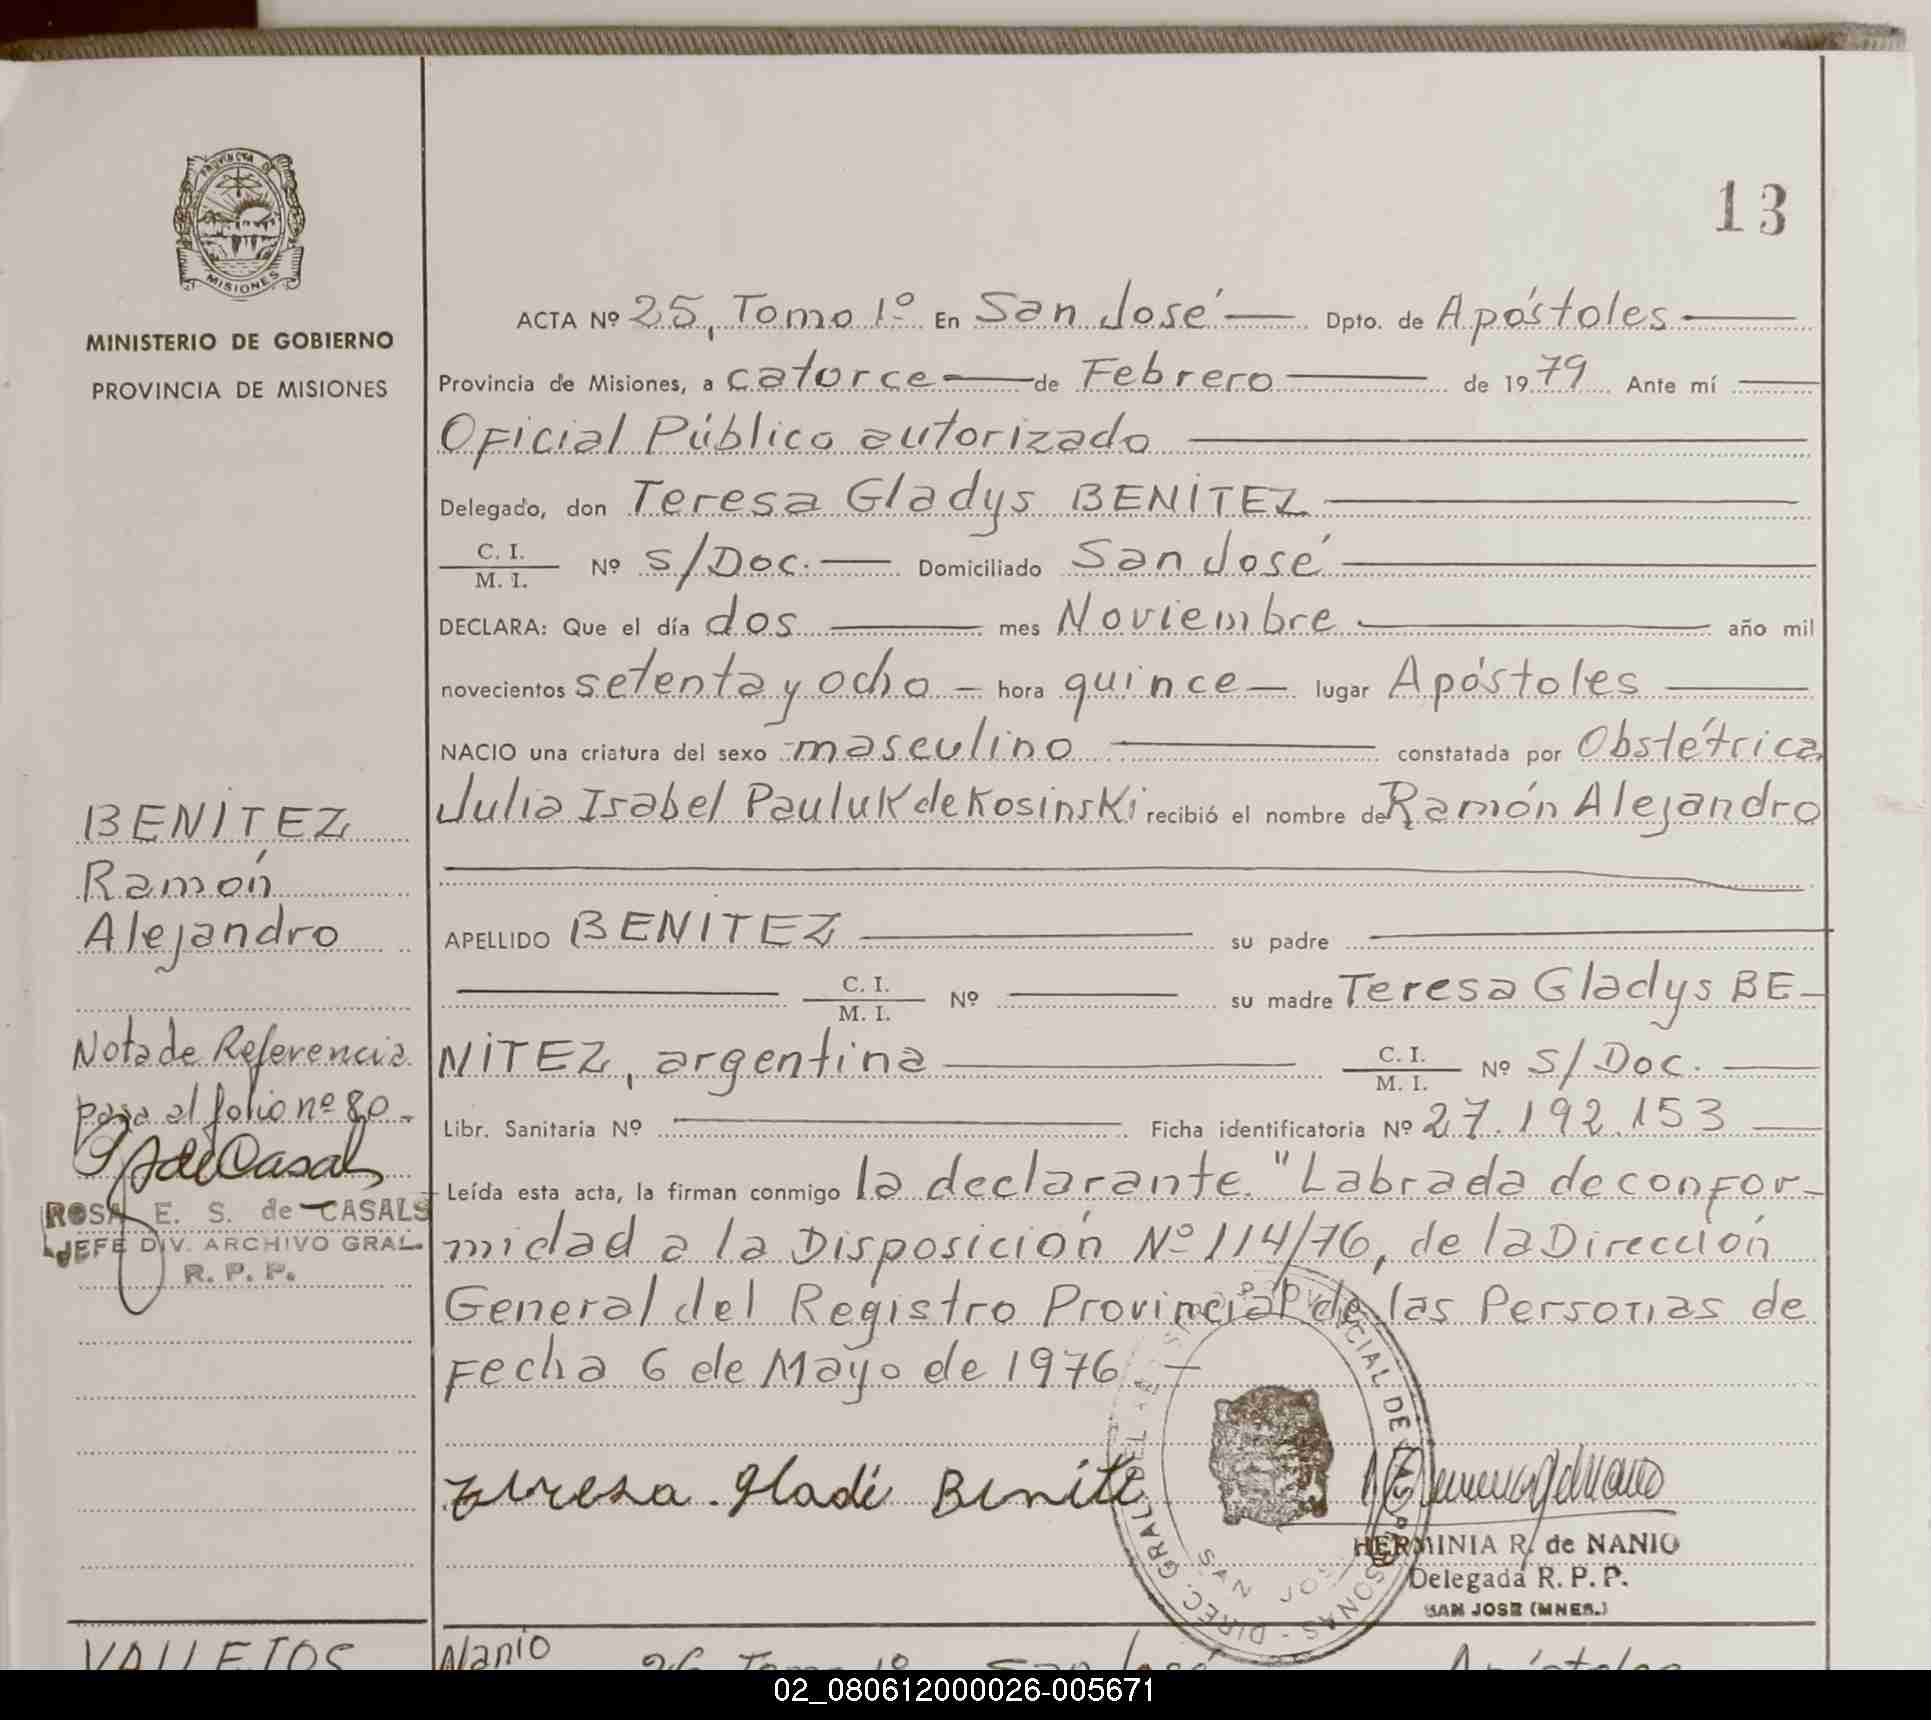 PROVINCIA DE
MISIONES
MINISTERIO DE GOBIERNO
PROVINCIA DE MISIONES
13
ACTA Nº 25, Tomo 1º En San José Dpto. de Apóstoles
Provincia de Misiones, a catorce de Febrero de 1979 Ante mí
Oficial Público autorizado
Delegado, don Teresa Gladys BENITEZ
C. I.
M. I. Nº S/Doc. Domiciliado San José
DECLARA: Que el día dos mes Noviembre año mil
novecientos setenta y ocho hora quince lugar Apóstoles
NACIO una criatura del sexo masculino constatada por Obstétrica
Julia Isabel Pauluk de Kosinski recibió el nombre de Ramón Alejandro
APELLIDO BENITEZ su padre
C. I.
M. I. Nº su madre Teresa Gladys BE-
NITEZ, argentina C. I.
M. I. Nº S/Doc.
Libr. Sanitaria Nº Ficha identificatoria Nº 27.192.153
Leída esta acta, la firman conmigo la declarante. "Labrada de confor-
midad a la Disposición Nº 114/76, de la Dirección
General del Registro Provincial de las Personas de
Fecha 6 de Mayo de 1976.-
Teresa Gladi Benite
HERMINIA R. de NANIO
Delegada R. P. P.
SAN JOSE (MNES.)
BENITEZ
Ramón
Alejandro
Nota de Referencia
pasa al folio nº 80.-
de Casals
ROSA E. S. de CASALS
JEFE DIV. ARCHIVO GRAL.
R. P. P.
DIREC. GRAL. DEL PROVINCIAL DE PERSONAS
SAN JOSE
VALLEJOS
Nanio 26 Tomo 1º San José Apóstoles
02_080612000026-005671